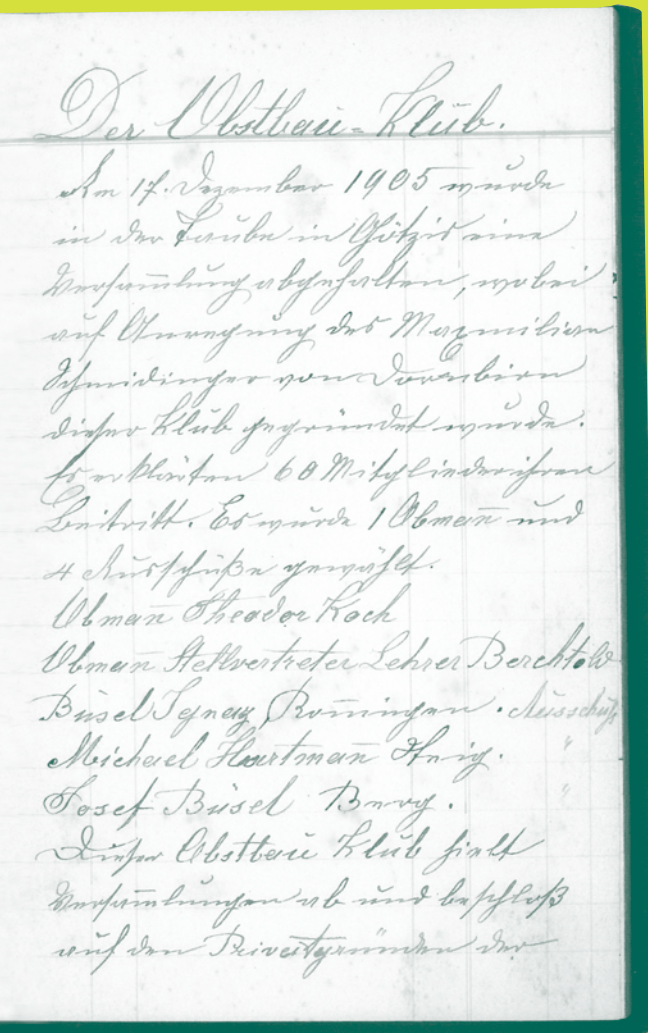 Der Obstbau-Klub.
Am 17. Dezember 1905 wurde
in der Taube in Götzis eine
Versam̄lung abgehalten, wobei
auf Anregung des Maxmilian
Schmidinger von Dornbirn
dieser Klub gegründet wurde.
Es erklärten 60 Mitglieder ihren
Beitritt. Es wurde 1 Obman̄ und
4 Ausschüße gewählt.
Obman̄ Theodor Koch
Obman̄ Stellvertreter Lehrer Berchtold
Büsel Ignaz, Rom̄ingen. Ausschuß
Michael Hartman̄ Steig. "
Josef Büsel Berg. "
Dieser Obstbau Klub hielt
Versam̄lungen ab und beschloß
auf den Privatgründen der